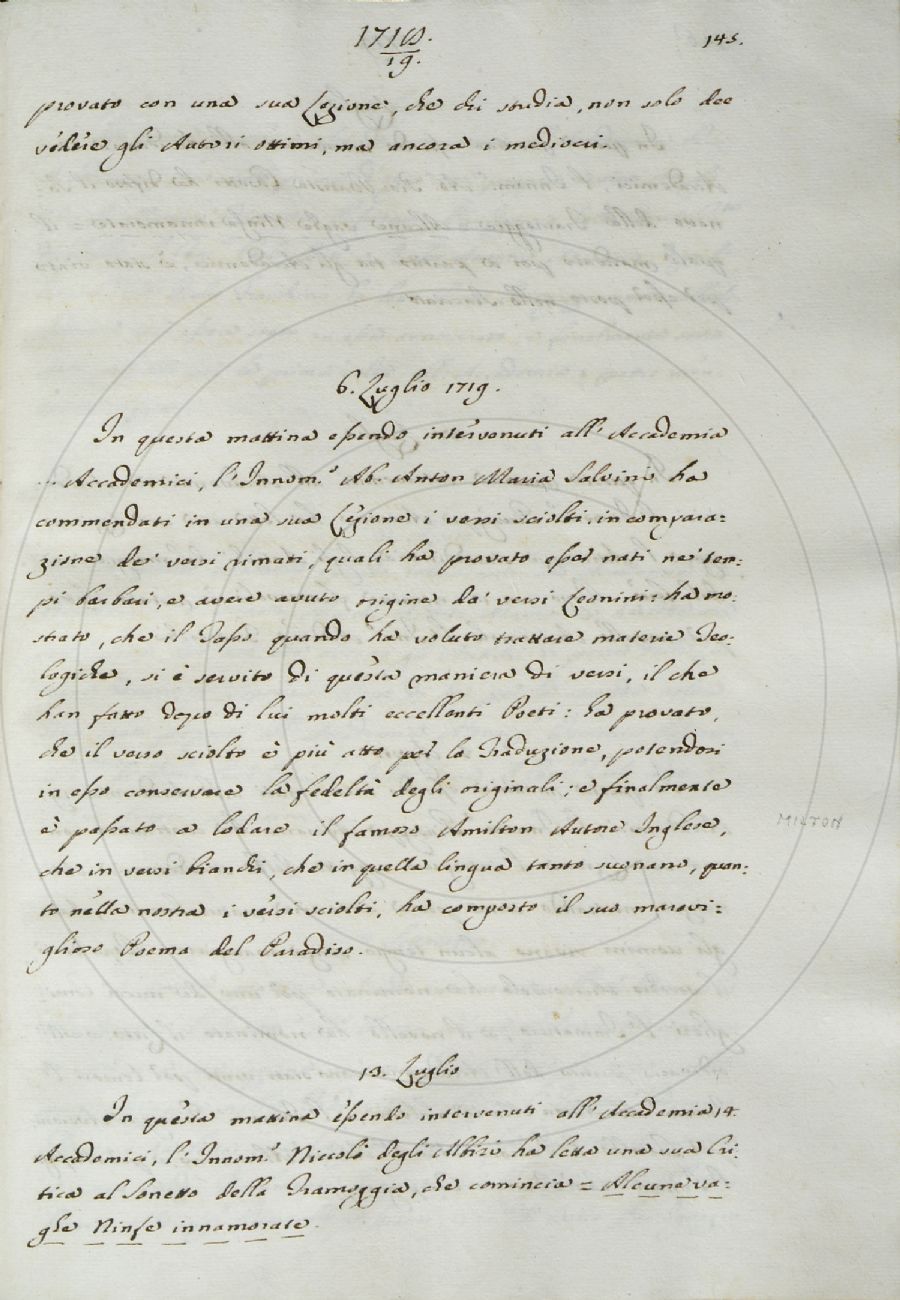 1718.
19.
145.
provato con una sua Lezione, che chi studia, non solo dee
vedere gli Autori ottimi, ma ancora i mediocri.
6. Luglio 1719.
In questa mattina essendo intervenuti all' Accademia
... Accademici, l' Innom.º Ab. Anton Maria Salvini ha
commendati in una sua Lezione i versi sciolti, in compara=
zione de' versi rimati, quali ha provato esser nati ne' tem=
pi barbari, e avere avuto origine da' versi Leonini: ha mo=
strato, che il Tasso quando ha voluto trattare materie Teo=
logiche, si è servito di questa maniera di versi, il che
han fatto dopo di lui molti eccellenti Poeti: ha provato,
che il verso sciolto è più atto per la Traduzione, potendosi
in esso conservare la fedeltà degli originali; e finalmente
è passato a lodare il famoso Amilton Autore Inglese,
che in versi bianchi, che in quella lingua tanto suonano, quan=
to nella nostra i versi sciolti, ha composto il suo maravi=
glioso Poema del Paradiso.
MILTON
13. Luglio
In questa mattina essendo intervenuti all' Accademia 14.
Accademici, l' Innom.º Niccolò degli Albizi ha letta una sua Cri=
tica al Sonetto della Tramoggia, che comincia = Alcune va=
ghe Ninfe innamorate.